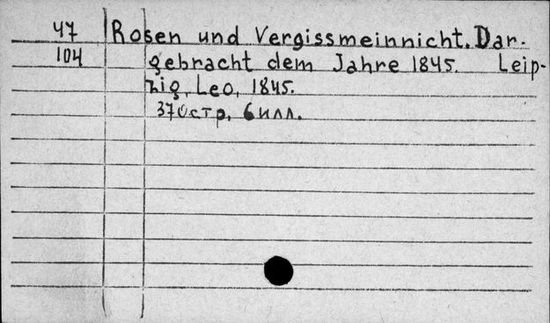 47 Rosen und Vergissmeinnicht. Dar-
104 gebracht dem Jahre 1845. Leip-
zig, Leo, 1845.
370стр, 6илл.